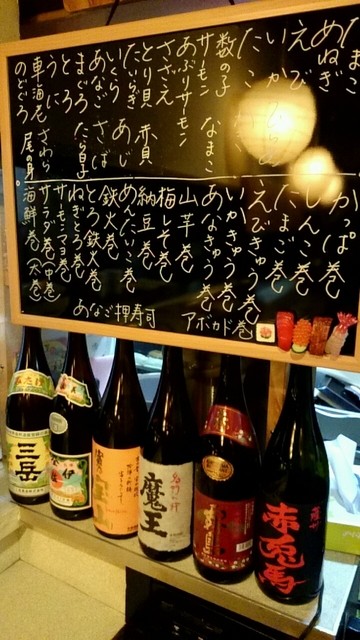 めねぎ
たこ
えび
いか
たこ
数の子
なまこ
サーモン
あぶりサーモン
さざえ
とり貝
赤貝
たいらぎ
あじ
いくら
さば
あなご
たら白子
まぐろ
とろ
うに
さわら
車海老
尾の身
のどぐろ
かっぱ巻
しんこ巻
たまご巻
えびきゅう巻
いかきゅう巻
あなきゅう巻
山芋巻
梅しそ巻
納豆巻
めんたいこ巻
鉄火巻
とろ鉄火巻
ねぎとろ巻
サーモンマヨ巻
サラダ巻(中巻)
海鮮巻(太巻)
アボカド巻
あなご押寿司
三岳
魔王
赤兎馬